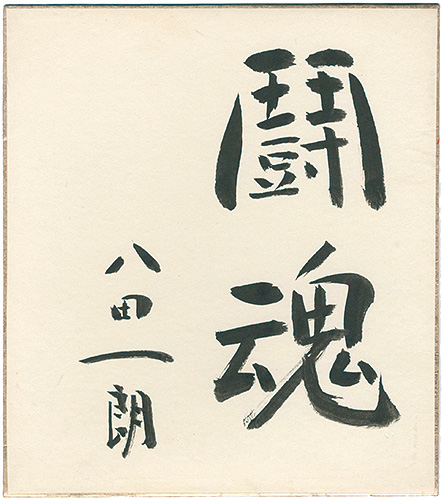 鬪魂
八田一朗